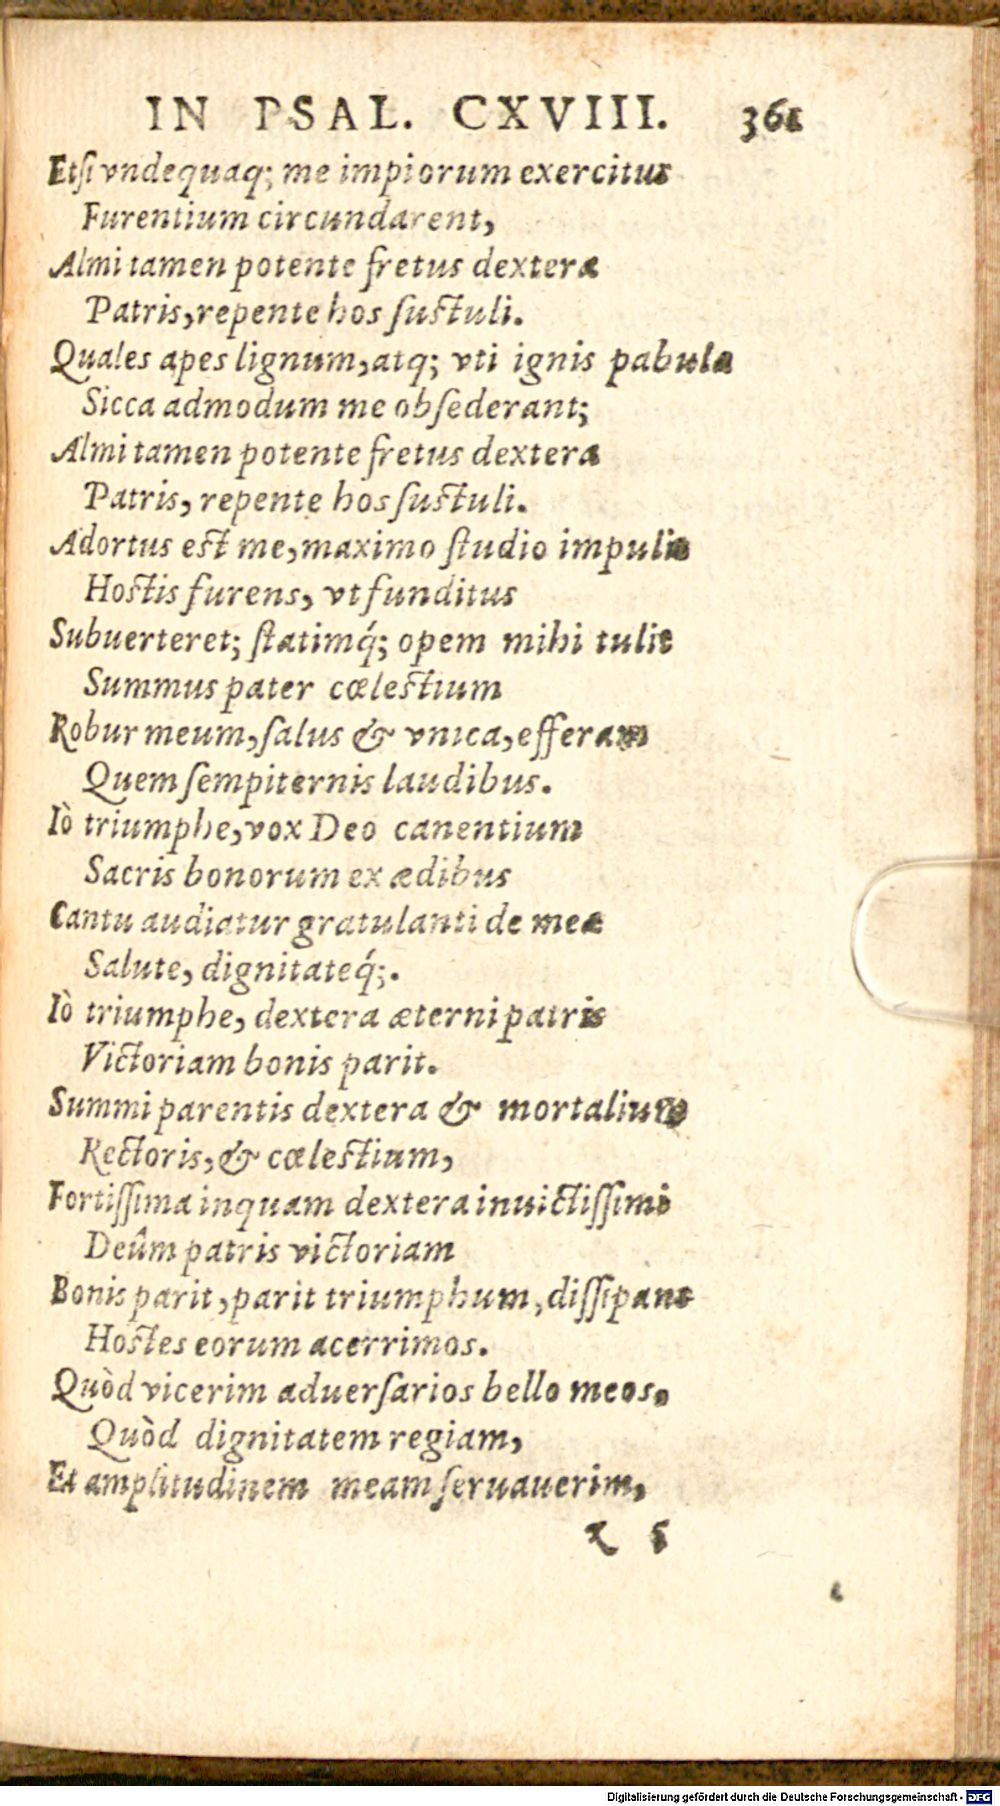 IN PSAL. CXVIII. 361
Etſi vndequaq; me impiorum exercitus
Furentium circundarent,
Almi tamen potente fretus dextera
Patris, repente hos ſuſtuli.
Quales apes lignum, atq; vti ignis pabula
Sicca admodum me obſederant;
Almi tamen potente fretus dextera
Patris, repente hos ſuſtuli.
Adortus eſt me, maximo ſtudio impulit
Hoſtis furens, vt funditus
Subuerteret; ſtatimq́; opem mihi tulit
Summus pater cœleſtium
Robur meum, ſalus & vnica, efferam
Quem ſempiternis laudibus.
Iò triumphe, vox Deo canentium
Sacris bonorum ex ædibus
Cantu audiatur gratulanti de mea
Salute, dignitateq́;.
Iò triumphe, dextera æterni patris
Victoriam bonis parit.
Summi parentis dextera & mortalium
Rectoris, & cœleſtium,
Fortiſſima inquam dextera inuictiſſimi
Deûm patris victoriam
Bonis parit, parit triumphum, diſſipans
Hoſtes eorum acerrimos.
Quòd vicerim aduerſarios bello meos,
Quòd dignitatem regiam,
Et amplitudinem meam ſeruauerim,
z 5
Digitalisierung gefördert durch die Deutsche Forschungsgemeinschaft - DFG